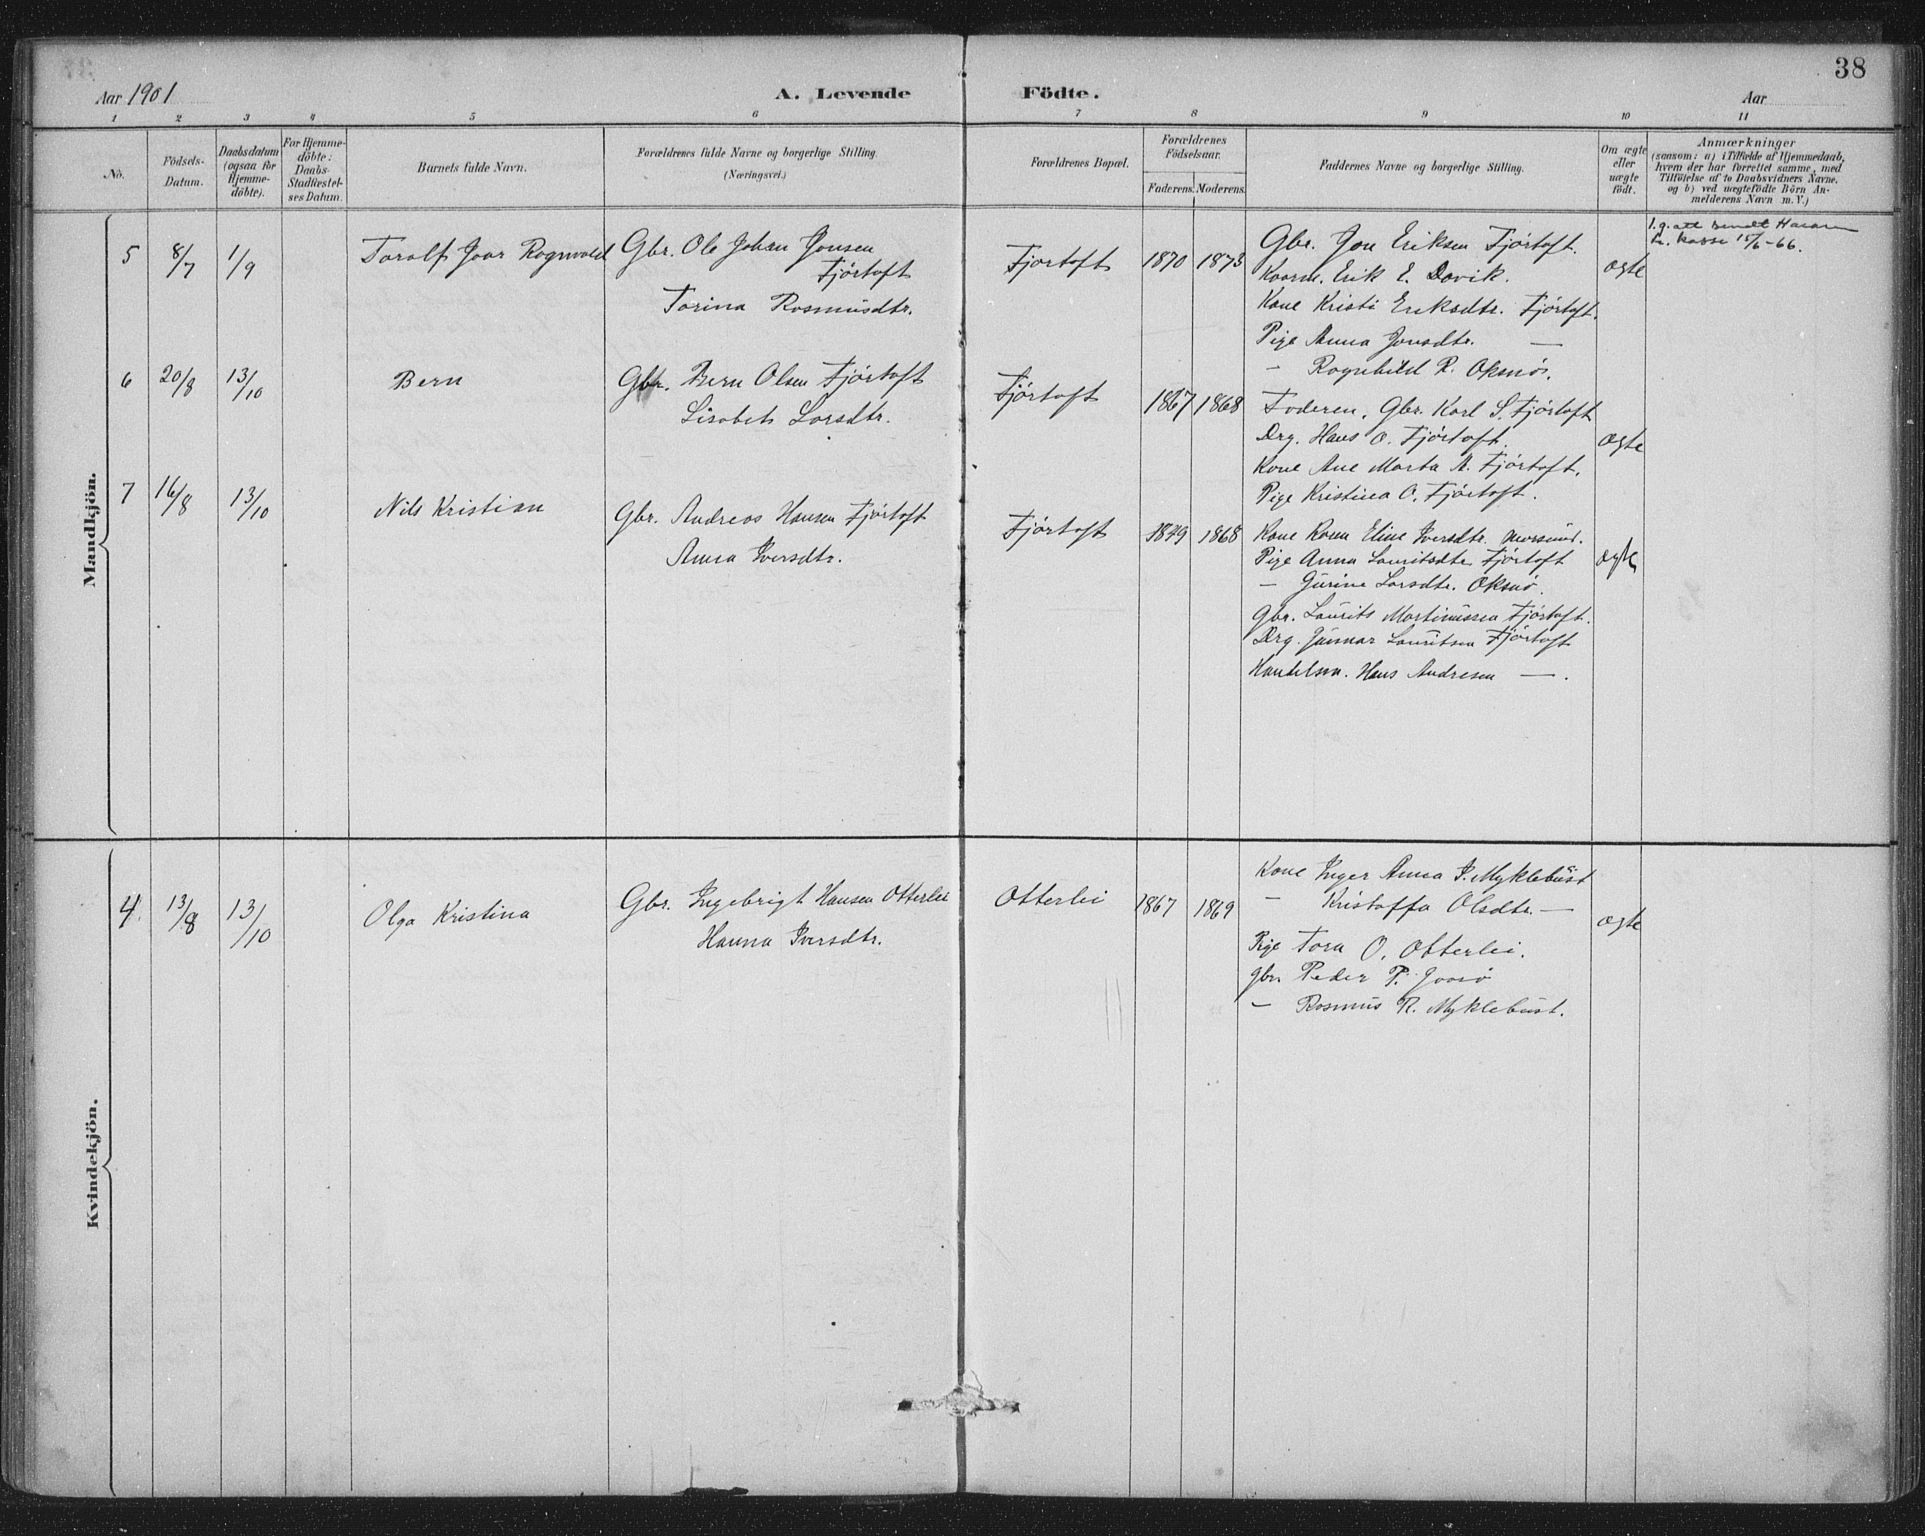 38
Aar 1901
A. Levende Födte.
Aar
1 2 3 4 5 6 7 8 9 10 11
No.
Födsels-Datum.
Daabsdatum (ogsaa for Hjemme-döbte).
For Hjemme-döbte: Daabs-Stadfæstel-ses Datum.
Barnets fulde Navn.
Forældrenes fulde Navne og borgerlige Stilling.
(Næringsvei.)
Forældrenes Bopæl.
Forældrenes Födselsaar.
Faderens. Moderens.
Faddernes Navne og borgerlige Stilling.
Om ægte eller uægte födt.
Anmærkninger
(saasom: a) i Tilfælde af Hjemmedaab,
hvem der har forrettet samme, med
Tilföielse af to Daabsvidners Navne,
og b) ved uægtefödte Börn An-
melderens Navn m. V.)
Mandkjön.
5 8/7 1/9 Toralf Ivar Rognvald
Gbr. Ole Johan Jonsen
Fjörtoft
Torina Rasmusdtr.
Fjortoft 1870 1873
Gbr. Jon Eriksen Fjörtoft.
Kaarm. Erik E. Davik.
Kone Kristi Eriksdtr. Fjörtoft.
Pige Anna Jonsdtr. —
- Ragnhild R. Oksnö.
ægte
l.g.att sendt Haram
tr. kasse 15/6-66.
6 20/8 13/10 Bern
Gbr. Bern Olsen Fjörtoft
Lisabet Larsdtr.
Fjörtoft 1867 1868
Faderen, Gbr. Karl S. Fjörtoft
Drg. Hans O. Fjörtoft.
Kone Ane Marta A. Fjörtoft.
Pige Kristina O. Fjörtoft.
ægte
7 16/8 13/10 Nils Kristian
Gbr. Andreas Hansen Fjörtoft
Anna Iversdtr.
Fjörtoft 1849 1868
Kone Karen Eline Iversdtr.
Pige Anna Lauritsdtr. Fjörtoft
— Gurine Larsdtr. Oksnö.
Gbr. Laurits Martinussen Fjörtoft.
Drg. Gunnar Lauritsen Fjörtoft
Handelsm. Hans Andresen —.
ægte
Kvindekjön.
4 13/8 13/10 Olga Kristina
Gbr. Ingebrigt Hansen Otterlei
Hanna Iversdtr.
Otterlei 1867 1869
Kone Inger Anna I. Myklebust
- Kristoffa Olsdtr. —
Pige Tora O. Otterlei.
Gbr. Peder P.
— Rasmus R. Myklebust.
ægte